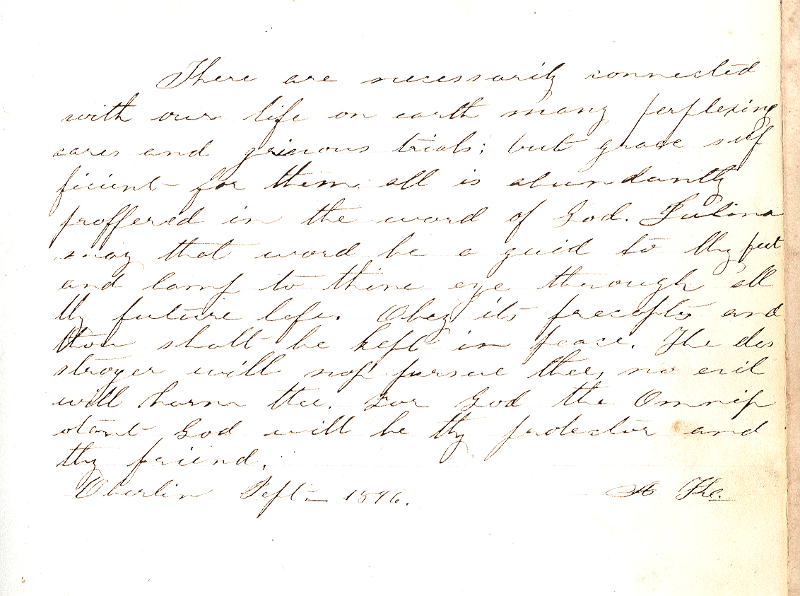 There are necessarily connected
with our life on earth many perplexing
cares and grievous trials; but grace suf
ficient for them all is abundantly
proffered in the word of God.
may that word be a guid to thy feet
and lamp to thine eye through all
thy future life. Obey its precepts and
thou shalt be kept in peace. The des
stroyer will not pursue thee, no evil
will harm thee. For God the Omnip
otent God will be thy protector and
thy friend.
Oberlin Sept 1846.